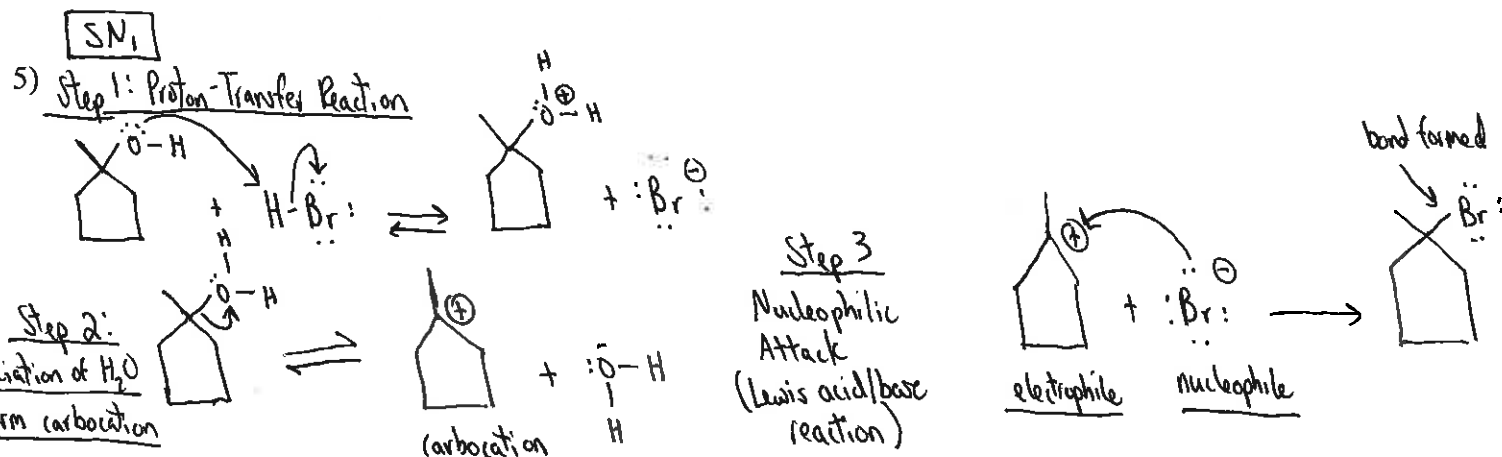 SN1
5) Step 1: Proton-Transfer Reaction
O-H
+
H-Br:
H
O-H
⊕
+ :Br: ⊖
Step 2:
iation of H2O
rm carbocation
H
O-H
⊕
carbocation
+ :O-H
H
Step 3
Nucleophilic
Attack
(Lewis acid/base
reaction)
⊕
electrophile
+ :Br: ⊖
nucleophile
bond formed
Br: